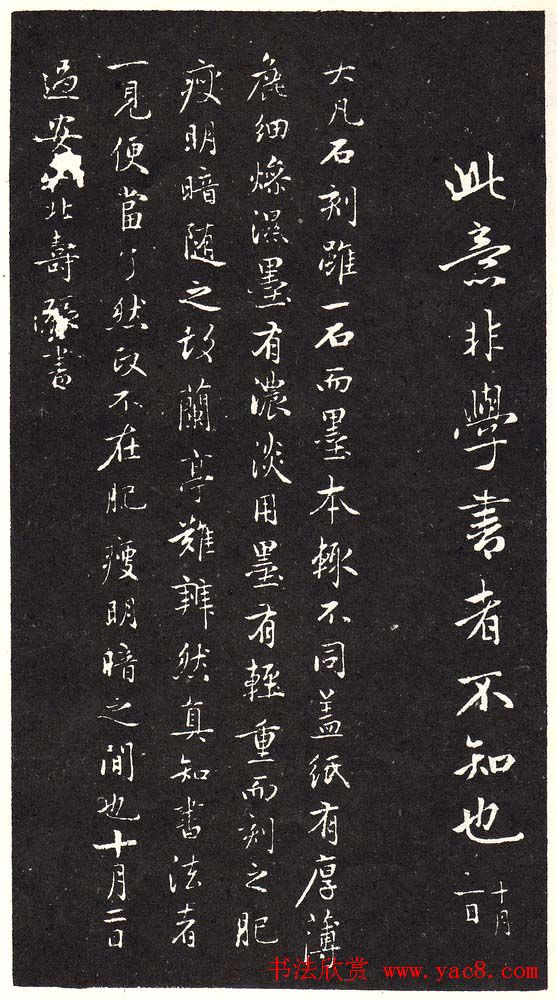 此意非學書者不知也十月
一日
大凡石刻雖一石而墨本輒不同蓋紙有厚薄
麁細燥濕墨有濃淡用墨有輕重而刻之肥
瘦明暗随之故蘭亭難辨然真知書法者
一見便當了然政不在肥瘦明暗之間也十月二日
過安北壽書
书法欣赏 www.yac8.com